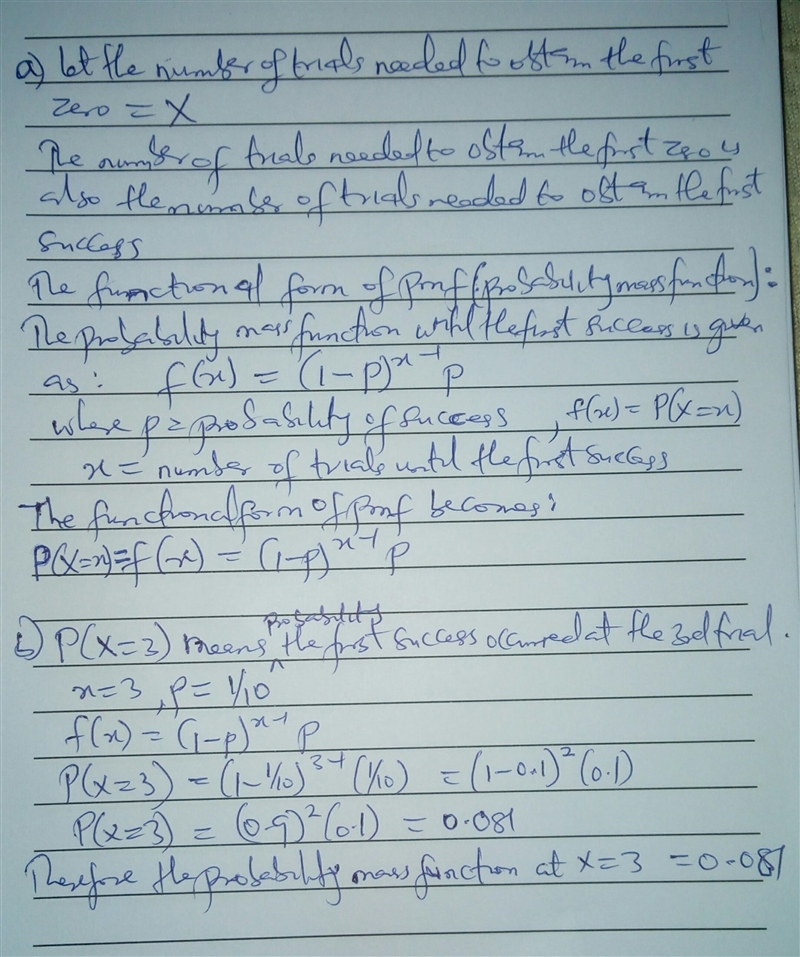 a) Let the number of trials needed to obtain the first
zero = X
The number of trials needed to obtain the first zero is
also the number of trials needed to obtain the first
success
The functional form of pmf (probability mass function):
The probability mass function until the first success is given
as: f(x) = (1-p)^{x-1} p
where p = probability of success , f(x) = P(X=x)
x = number of trials until the first success
The functional form of pmf becomes:
P(X=x)=f(x) = (1-p)^{x-1} p
b) P(X=3) means probability the first success occurred at the 3rd trial.
x=3, p= 1/10
f(x) = (1-p)^{x-1} p
P(x=3) = (1-1/10)^{3-1} (1/10) = (1-0.1)^2 (0.1)
P(x=3) = (0.9)^2 (0.1) = 0.081
Therefore the probability mass function at x=3 = 0.081